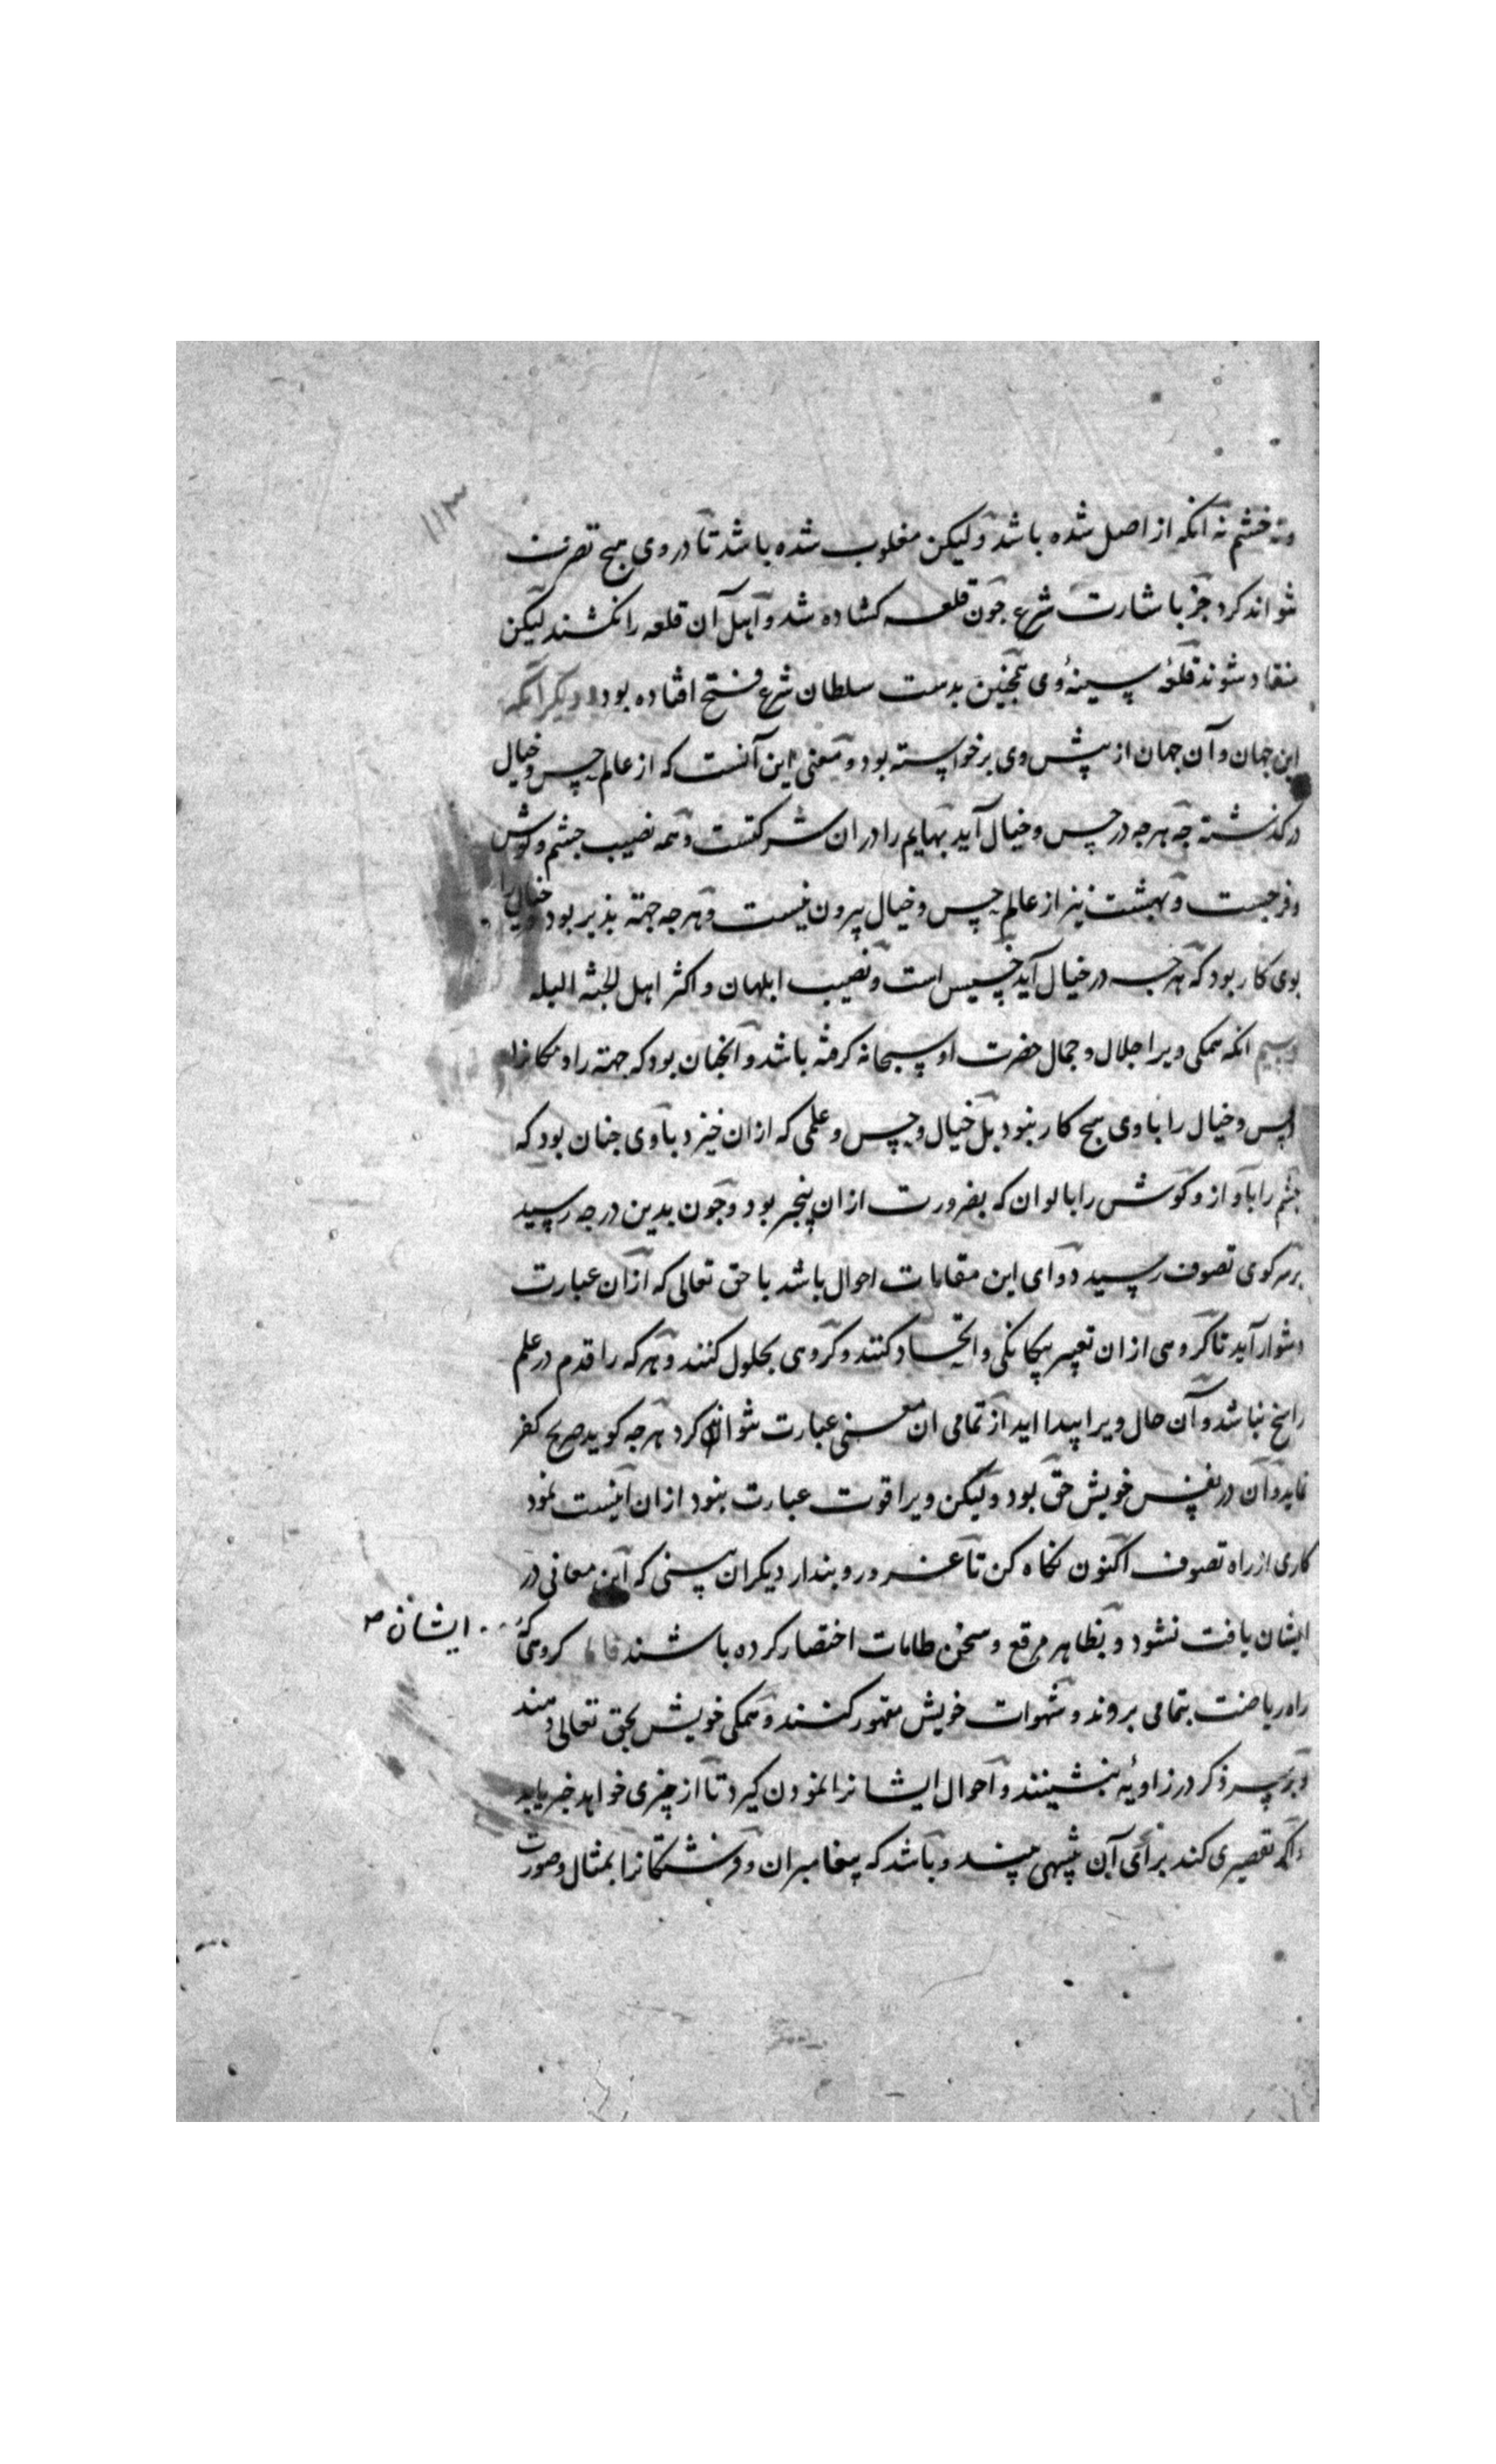 ۱۱۳
ونه خشم نه انکه از اصل شده باشد ولیکن مغلوب شده باشد تا در وی هیچ تصرف
نتواند کرد جز باشارت شرع جون قلعه کشاده شد و اهل آن قلعه را نکشند لیکن
منقاد شوند قلعهٔ سینهٔ وی همچنین بدست سلطان شرع فتح افتاده بود دیکر آنکه
این جهان و آن جهان از پیش وی برخواسته بود و معنی این آنست که از عالم حس و خیال
درکذشته جه هرجه در حس و خیال آید بهایم را دران شرکتست و همه نصیب جشم و کوش
و فرجست و بهشت نیز از عالم حس و خیال بیرون نیست و هرجه جهة بذیر بود خیال را
بوی کار بود که هرجه در خیال آید خسیس است و نصیب ابلهان و اکثر اهل الجنة البله
انکه همکی ویرا جلال و جمال حضرت او سبحانه کرفته باشد و آنجنان بود که جهة را و مکانرا
و حس و خیال را با وی هیج کار نبود بل خیال و حس و علمی که ازان خیزد با وی جنان بود که
جشم را با آواز و کوش را با الوان که بضرورت ازان بیخبر بود و جون بدین درجه رسید
بر سر کوی تصوف رسید و ورای این مقامات احوال باشد با حق تعالی که ازان عبارت
دشوار آید تا کروهی ازان تعبیر بیکانکی و اتحاد کنند و کروهی بحلول کنند و هرکه را قدم در علم
راسخ نباشد و آن حال ویرا پیدا اید از تمامی ان معنی عبارت نتواند کرد هرجه کوید صریح کفر
نماید و آن در نفس خویش حق بود ولیکن ویرا قوت عبارت نبود ازان اینست نمود
کاری از راه تصوف اکنون نکاه کن تا غرور و بندار دیکران بینی که این معانی در
ایشان یافت نشود و بظاهر مرقع و سخن طامات اختصار کرده باشند کروهی که
ایشان ص
راه ریاضت بتمامی بروند و شهوات خویش مقهور کنند و همکی خویش بحق تعالی دهند
و بر سر ذکر در زاویهٔ بنشینند و احوال ایشانرا نمودن کیرد تا از چیزی خواهد خبر یابد
و اکر تقصیری کند برای آن تنبیهی بیند و باشد که پیغامبران و فرشتکانرا بمثال و صورت